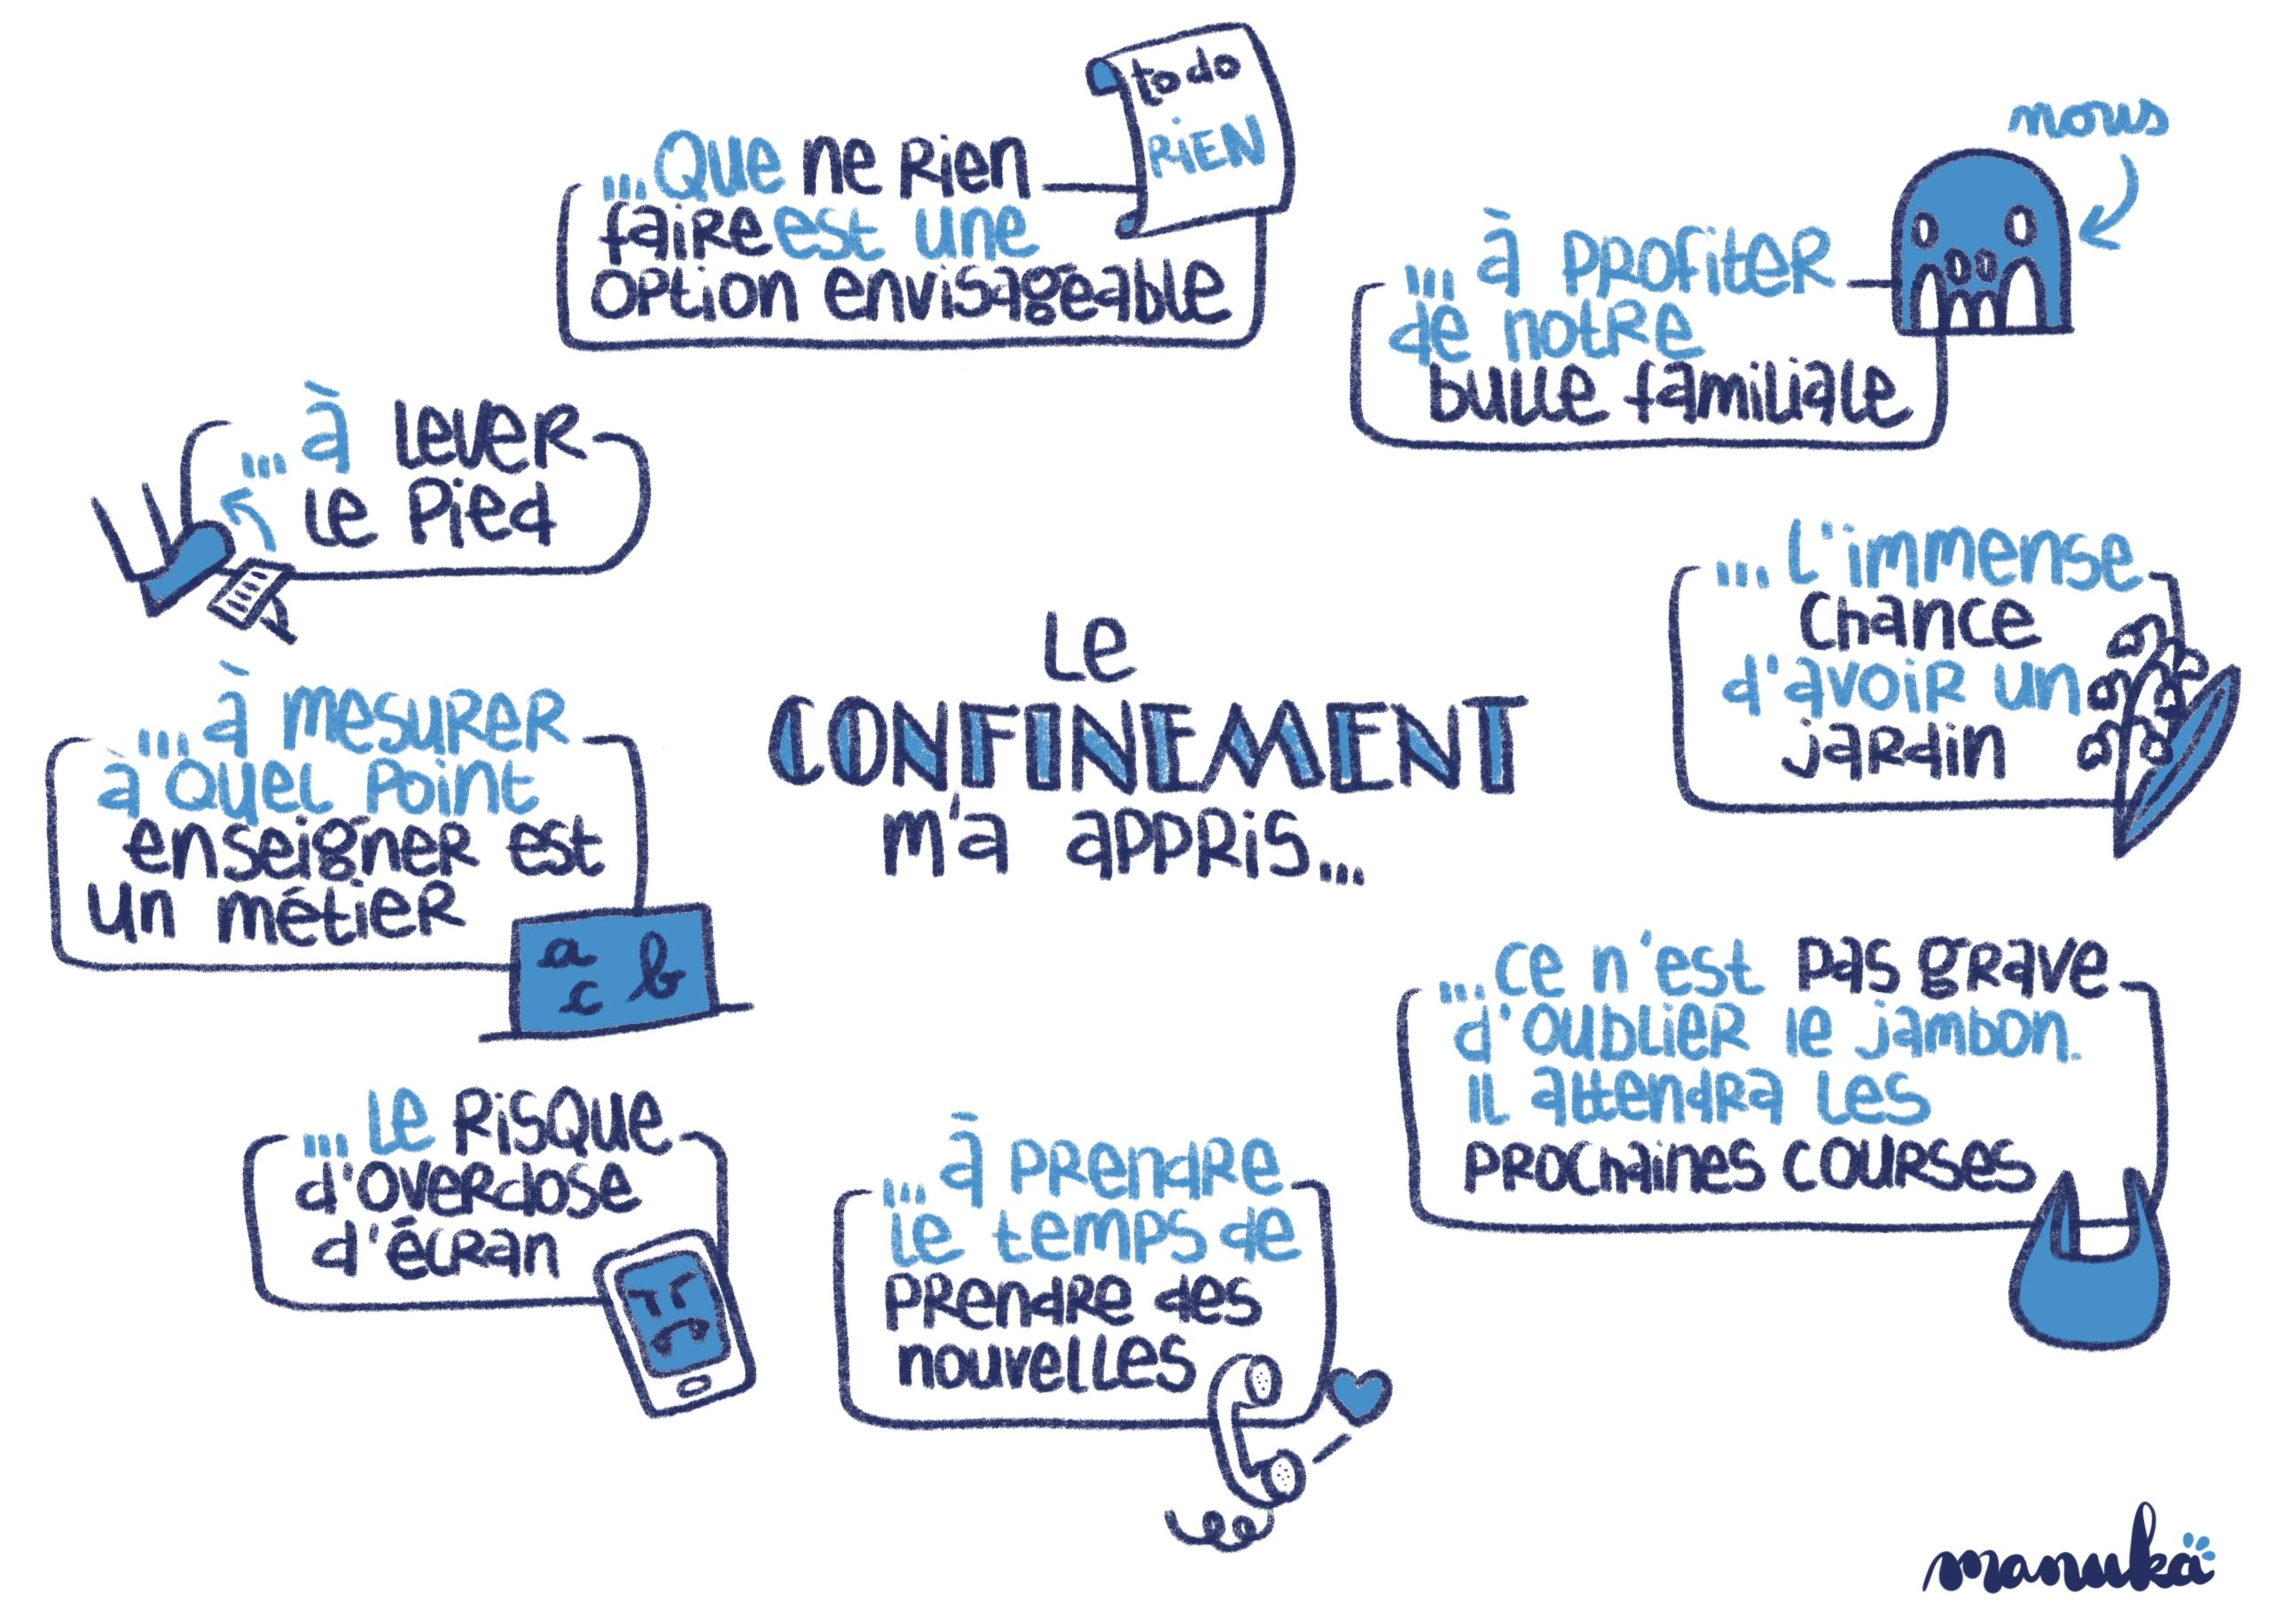 Le
CONFINEMENT
m'a appris...
...Que ne rien
faire est une
option envisageable
to do
RIEN
...à profiter
de notre
bulle familiale
nous
...l'immense
chance
d'avoir un
jardin
...ce n'est pas grave
d'oublier le jambon.
il attendra les
prochaines courses
...à prendre
le temps de
prendre des
nouvelles
...le risque
d'overdose
d'écran
...à mesurer
à quel point
enseigner est
un métier
a b
c
...à lever
le pied
manuka